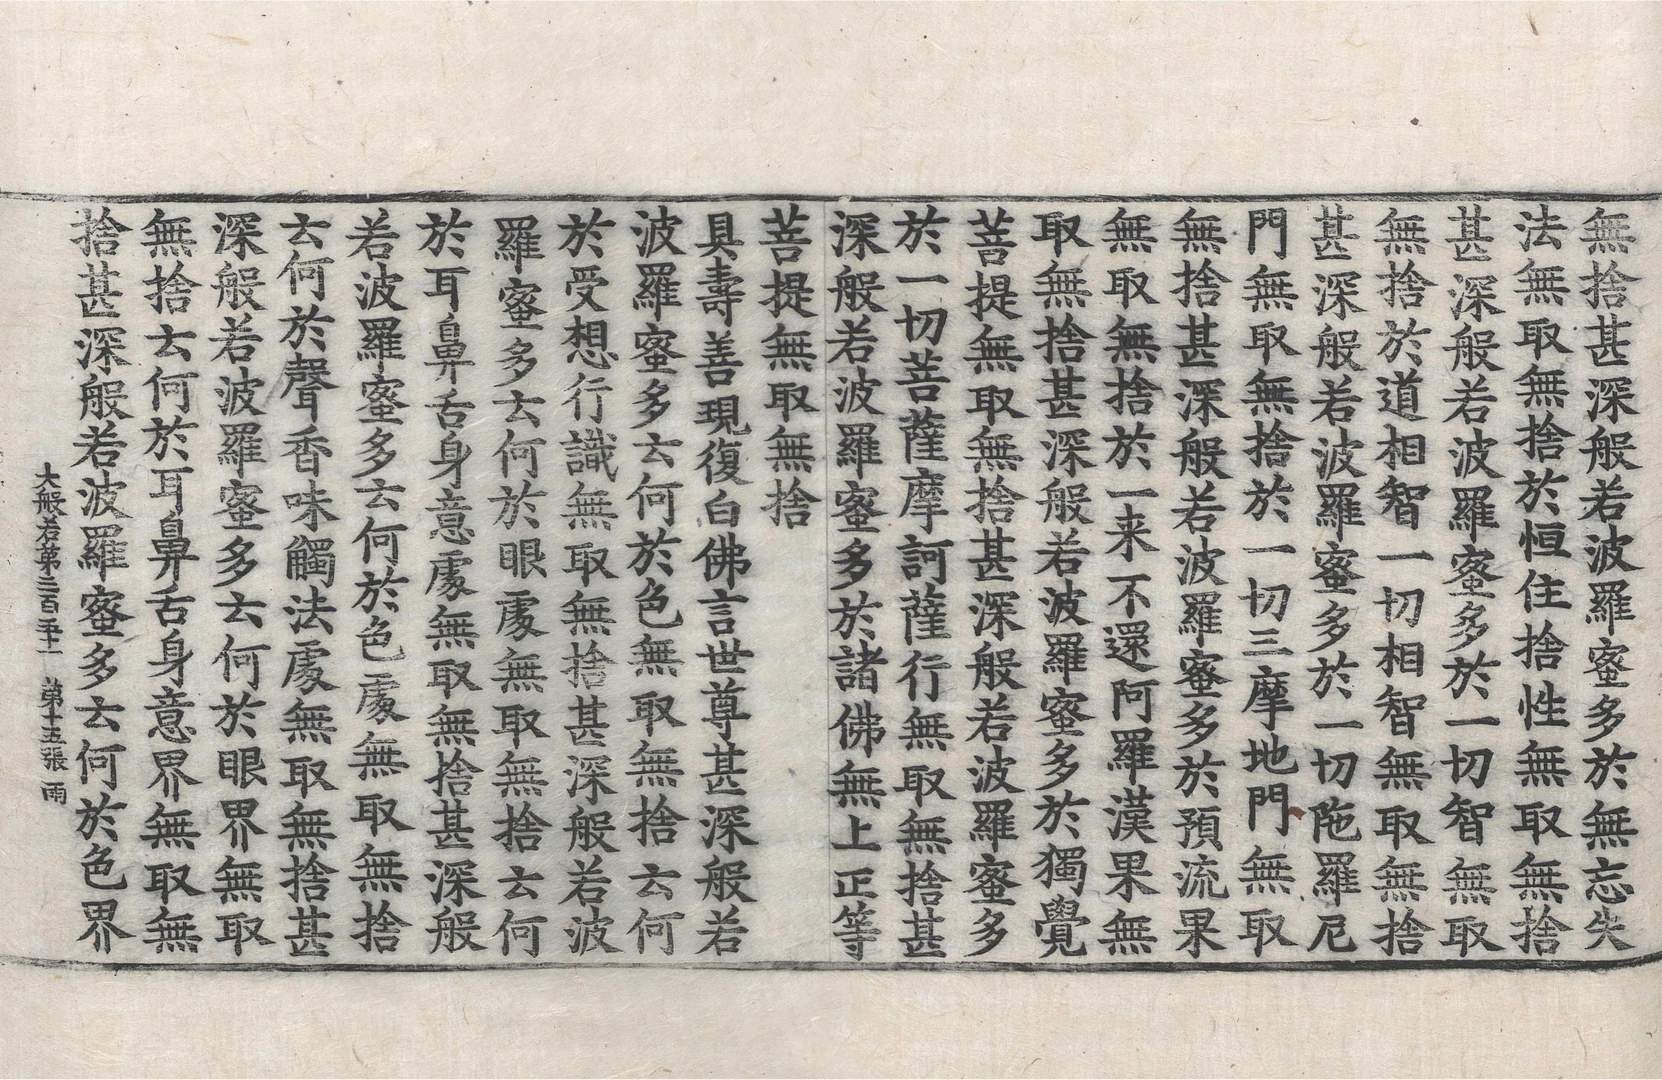 無捨甚深般若波羅蜜多於無忘失
法無取無捨於恒住捨性無取無捨
甚深般若波羅蜜多於一切智無取
無捨於道相智一切相智無取無捨
甚深般若波羅蜜多於一切陁羅尼
門無取無捨於一切三摩地門無取
無捨甚深般若波羅蜜多於預流果
無取無捨於一来不還阿羅漢果無
取無捨甚深般若波羅蜜多於獨覺
菩提無取無捨甚深般若波羅蜜多
於一切菩薩摩訶薩行無取無捨甚
深般若波羅蜜多於諸佛無上正等
菩提無取無捨
具壽善現復白佛言世尊甚深般若
波羅蜜多云何於色無取無捨云何
於受想行識無取無捨甚深般若波
羅蜜多云何於眼處無取無捨云何
於耳鼻舌身意處無取無捨甚深般
若波羅蜜多云何於色處無取無捨
云何於聲香味觸法處無取無捨甚
深般若波羅蜜多云何於眼界無取
無捨云何於耳鼻舌身意界無取無
捨甚深般若波羅蜜多云何於色界
大般若第三百五十一 第十五張 雨